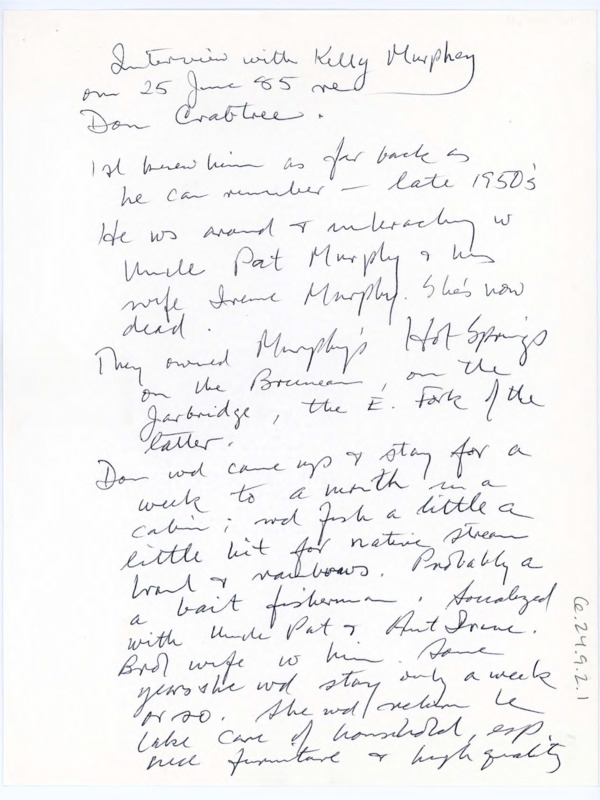 Interview with Kelly Murphey
on 25 June 85 re
Don Crabtree.
1st knew him as far back as
he can remember — late 1950's
He ws around & interacting w
Uncle Pat Murphy & his
wife Irene Murphy. She's now
dead.
They owned Murphy's Hot Springs
on the Bruneau, on the
Jarbridge, the E. Fork of the
latter.
Don wd come up & stay for a
week to a month in a
cabin; wd fish a little a
little bit for native stream
trout & rainbows. Probably a
a bait fisherman. Socialized
with Uncle Pat & Aunt Irene.
Brot wife w him. Some
years she wd stay only a week
or so. She wd return to
take care of household, esp.
nice furniture & high quality
6.24.9.2.1